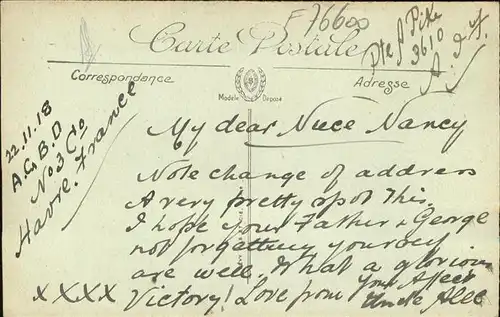 F 76600
Carte Postale
Correspondance
Adresse
Modèle Déposé
Pte A Pike
3610
A. I. F.
22.11.18
A.G.B.D
No 3 Co
Havre. France
My dear Niece Nancy
Note change of address
A very pretty spot this.
I hope your Father & George
not forgetting yourself
are well. What a glorious
Victory! Love from your Affect
Uncle Alec
X X X X